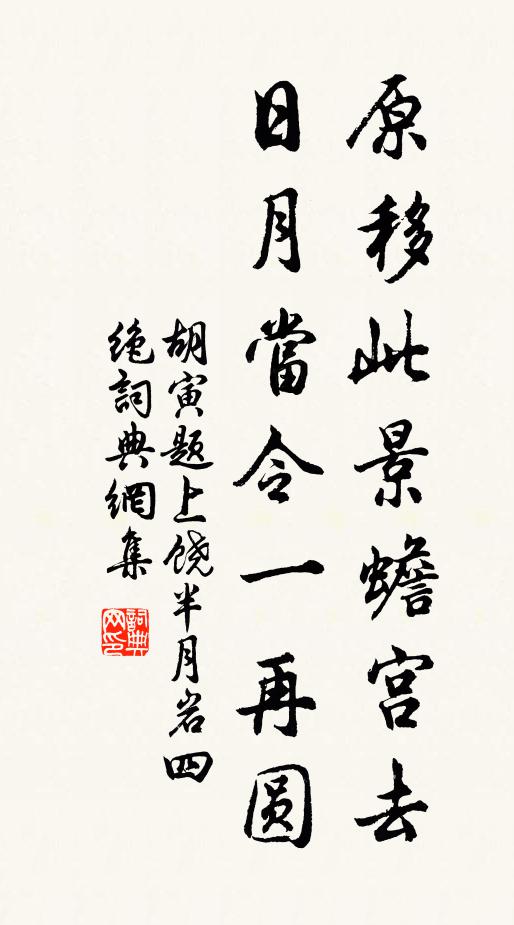 原移此景蟾宫去
日月當令一再圆
胡寅题上饶半月岩四
绝詞典網集
詞典
网印